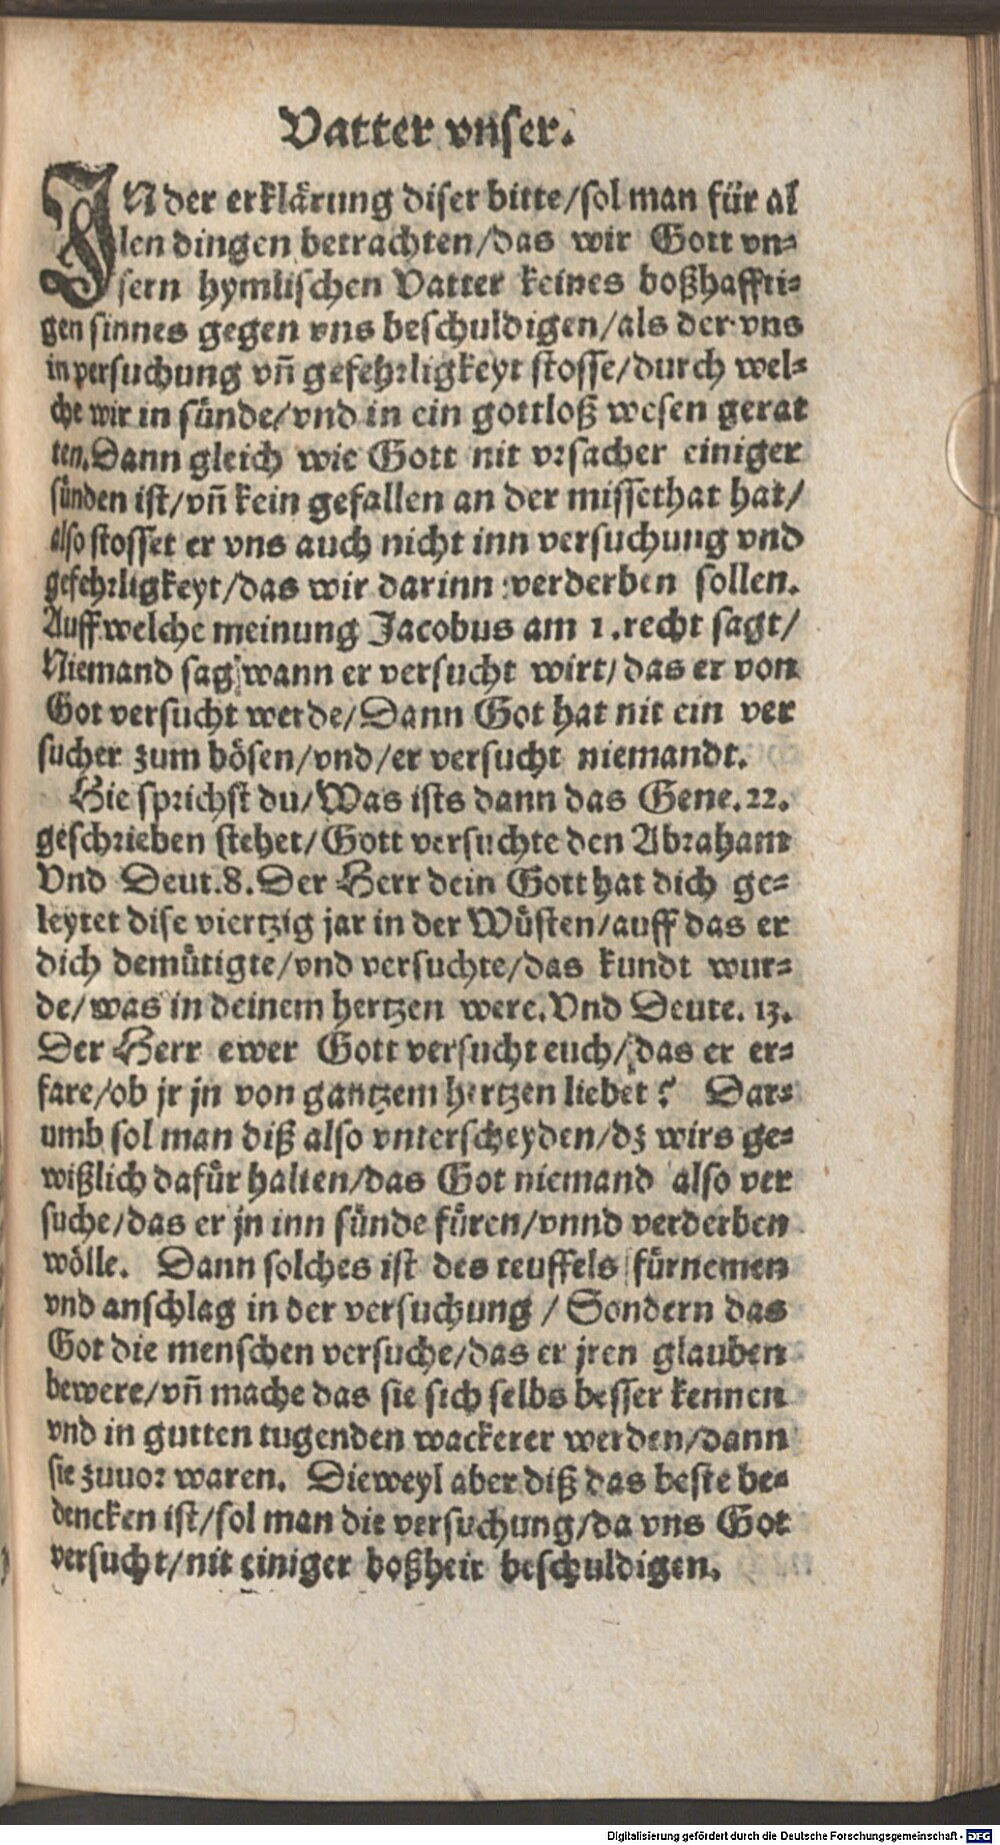 Vatter vnser.
IN der erklärung diser bitte/sol man für al
len dingen betrachten/das wir Gott vn⸗
sern hymlischen Vatter keines boßhaffti⸗
gen sinnes gegen vns beschuldigen/als der vns
in versuchung vñ gefehrligkeyt stosse/durch wel⸗
che wir in sünde/vnd in ein gottloß wesen gerat
ten. Dann gleich wie Gott nit vrsacher einiger
sünden ist/vñ kein gefallen an der missethat hat/
also stosset er vns auch nicht inn versuchung vnd
gefehrligkeyt/das wir darinn verderben sollen.
Auff welche meinung Jacobus am 1. recht sagt/
Niemand sag wann er versucht wirt/das er von
Got versucht werde/Dann Got hat nit ein ver
sucher zum bösen/vnd/er versucht niemandt.
Hie sprichst du/Was ists dann das Gene. 22.
geschrieben stehet/Gott versuchte den Abraham
Vnd Deut. 8. Der Herr dein Gott hat dich ge⸗
leytet dise viertzig jar in der Wüsten/auff das er
dich demütigte/vnd versuchte/das kundt wur⸗
de/was in deinem hertzen were. Vnd Deute. 13.
Der Herr ewer Gott versucht euch/das er er⸗
fare/ob jr jn von gantzem hertzen liebet? Dar⸗
umb sol man diß also vnterscheyden/dz wirs ge⸗
wißlich dafür halten/das Got niemand also ver
suche/das er jn inn sünde füren/vnnd verderben
wölle. Dann solches ist des teuffels fürnemen
vnd anschlag in der versuchung / Sondern das
Got die menschen versuche/das er jren glauben
bewere/vñ mache das sie sich selbs besser kennen
vnd in gutten tugenden wackerer werden/dann
sie zuuor waren. Dieweyl aber diß das beste be⸗
dencken ist/sol man die versuchung/da vns Got
versucht/nit einiger boßheit beschuldigen.
Digitalisierung gefördert durch die Deutsche Forschungsgemeinschaft - DFG